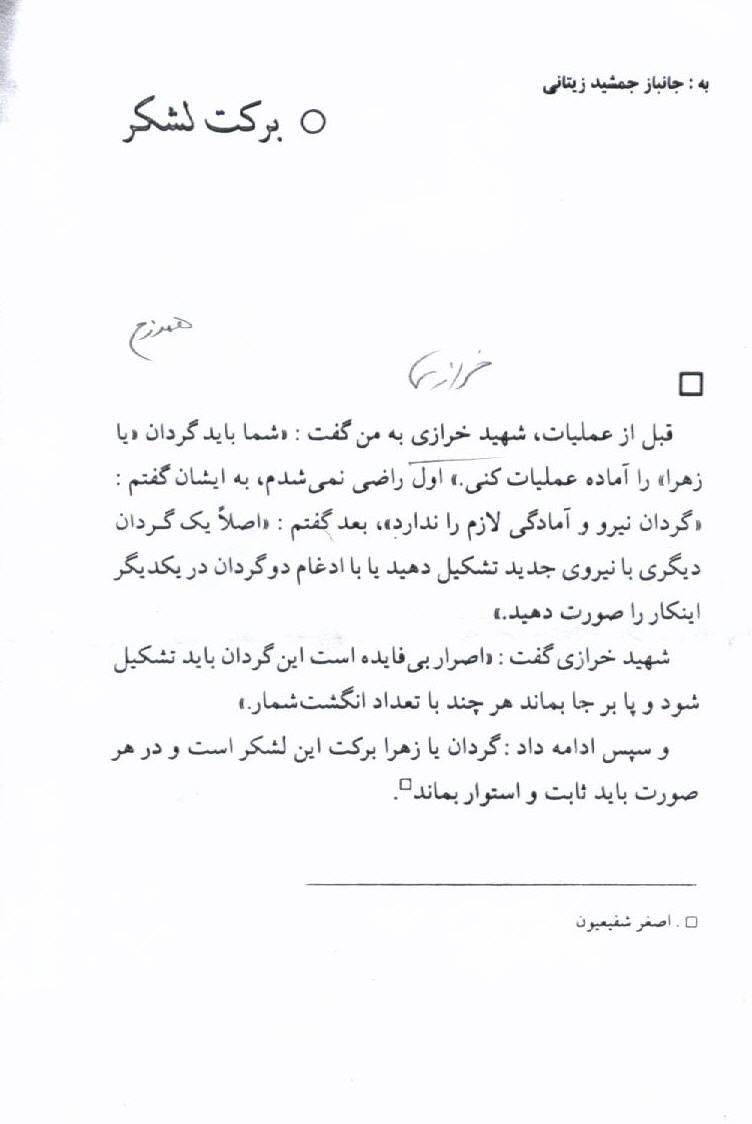 به : جانباز جمشید زیتانی
○ برکت لشکر
همرزم
خرازی
□
قبل از عملیات، شهید خرازی به من گفت : «شما باید گردان «یا
زهرا» را آماده عملیات کنی.» اول راضی نمی‌شدم، به ایشان گفتم :
«گردان نیرو و آمادگی لازم را ندارد»، بعد گفتم : «اصلاً یک گردان
دیگری با نیروی جدید تشکیل دهید یا با ادغام دو گردان در یکدیگر
اینکار را صورت دهید.»
شهید خرازی گفت : «اصرار بی‌فایده است این گردان باید تشکیل
شود و پا بر جا بماند هر چند با تعداد انگشت‌شمار.»
و سپس ادامه داد : گردان یا زهرا برکت این لشکر است و در هر
صورت باید ثابت و استوار بماند□.
□ . اصغر شفیعیون